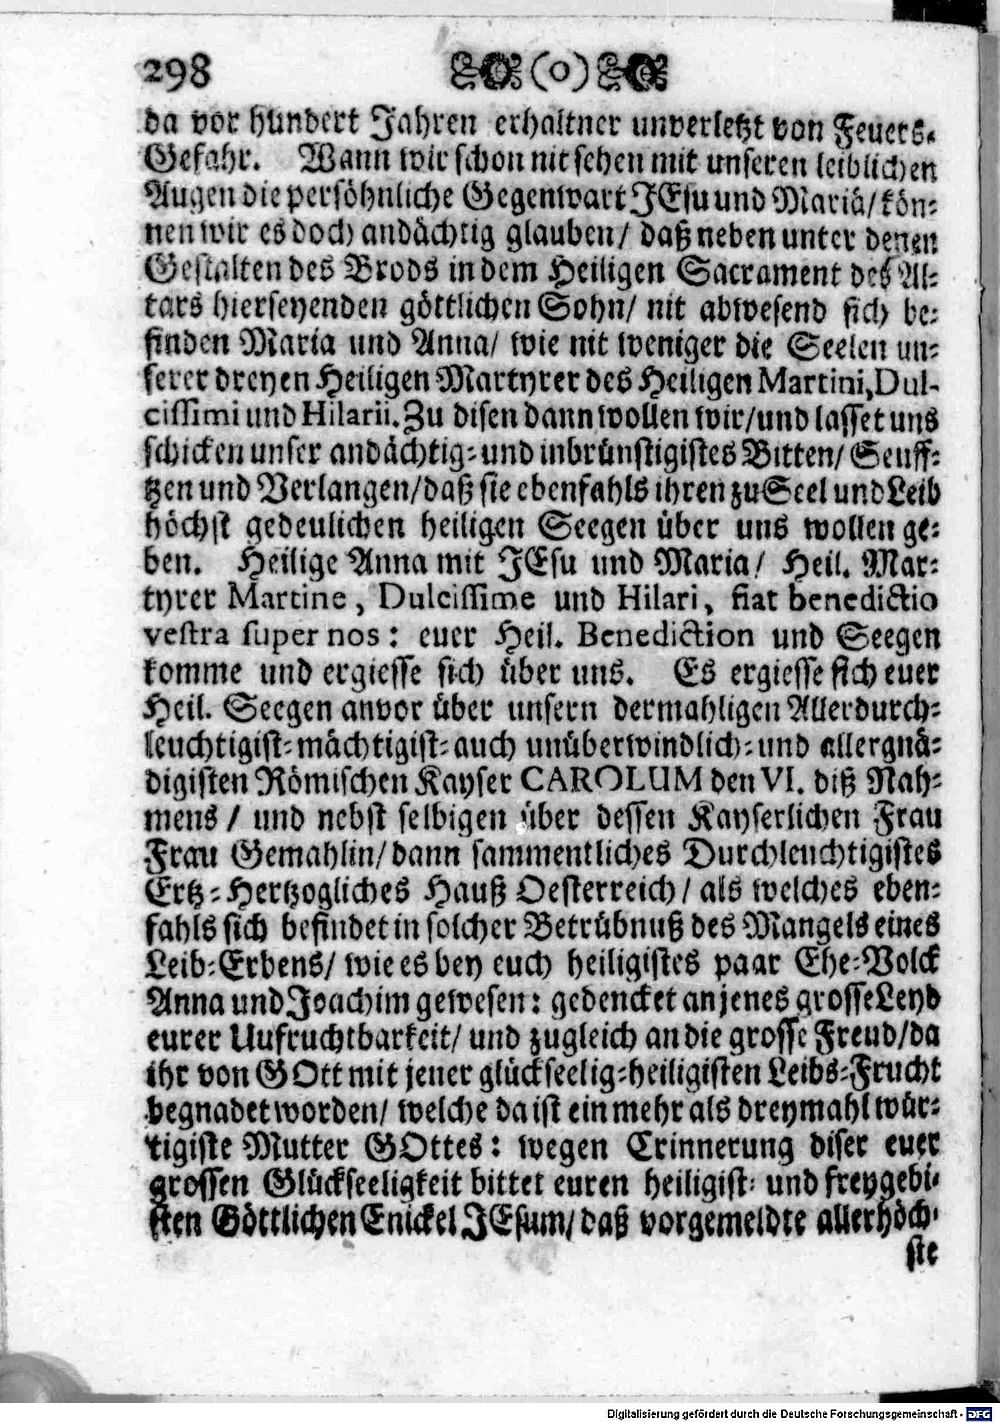 298 (o)
da vor hundert Jahren erhaltner unverletzt von Feuers-
Gefahr. Wann wir schon nit sehen mit unseren leiblichen
Augen die persöhnliche Gegenwart JEsu und Mariä/ kön-
nen wir es doch andächtig glauben/ daß neben unter denen
Gestalten des Brods in dem Heiligen Sacrament des Al-
tars hierseyenden göttlichen Sohn/ nit abwesend sich be-
finden Maria und Anna/ wie nit weniger die Seelen un-
serer dreyen Heiligen Martyrer des Heiligen Martini, Dul-
cissimi und Hilarii. Zu disen dann wollen wir/ und lasset uns
schicken unser andächtig- und inbrünstigistes Bitten/ Seuff-
tzen und Verlangen/ daß sie ebenfahls ihren zu Seel und Leib
höchst gedeulichen heiligen Seegen über uns wollen ge-
ben. Heilige Anna mit JEsu und Maria/ Heil. Mar-
tyrer Martine, Dulcissime und Hilari, fiat benedictio
vestra super nos: euer Heil. Benediction und Seegen
komme und ergiesse sich über uns. Es ergiesse sich euer
Heil. Seegen anvor über unsern dermahligen Allerdurch-
leuchtigist-mächtigist-auch unüberwindlich-und allergnä-
digisten Römischen Kayser CAROLUM den VI. diß Nah-
mens/ und nebst selbigen über dessen Kayserlichen Frau
Frau Gemahlin/ dann sammentliches Durchleuchtigistes
Ertz-Hertzogliches Hauß Oesterreich/ als welches eben-
fahls sich befindet in solcher Betrübnuß des Mangels eines
Leib-Erbens/ wie es bey euch heiligistes paar Ehe-Volck
Anna und Joachim gewesen: gedencket an jenes grosse Leyd
eurer Unfruchtbarkeit/ und zugleich an die grosse Freud/ da
ihr von GOtt mit jener glückseelig-heiligisten Leibs-Frucht
begnadet worden/ welche da ist ein mehr als dreymahl wür-
tigiste Mutter GOttes: wegen Erinnerung diser euer
grossen Glückseeligkeit bittet euren heiligist- und freygebi-
sten Göttlichen Enickel JEsum/ daß vorgemeldte allerhöch-
ste
Digitalisierung gefördert durch die Deutsche Forschungsgemeinschaft - DFG